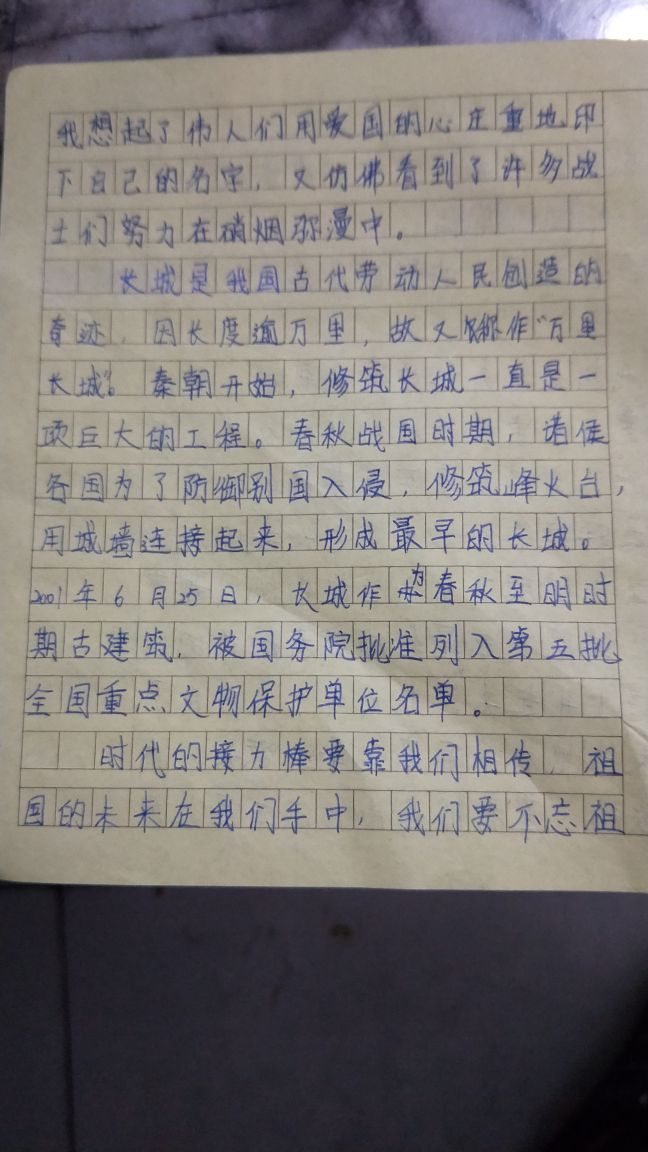 我想起了伟人们用爱国的心庄重地印
下自己的名字，又仿佛看到了许多战
士们努力在硝烟弥漫中。
长城是我国古代劳动人民创造的
奇迹，因长度逾万里，故又称作“万里
长城”。秦朝开始，修筑长城一直是一
项巨大的工程。春秋战国时期，诸侯
各国为了防御别国入侵，修筑峰火台，
用城墙连接起来，形成最早的长城。
2001年6月25日，长城作为春秋至明时
期古建筑，被国务院批准列入第五批
全国重点文物保护单位名单。
时代的接力棒要靠我们相传，祖
国的未来在我们手中，我们要不忘祖